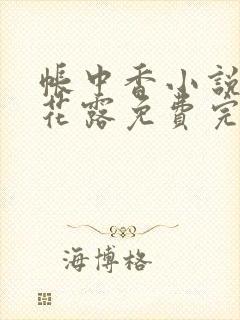 帳中香小說
花露免費完
海博格